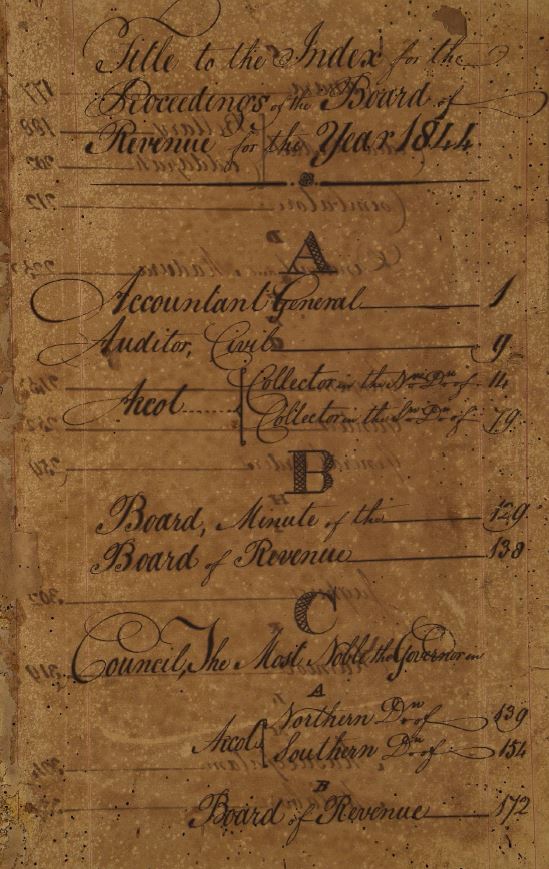 Title to the Index for the
Proceedings of the Board of
Revenue for the Year 1844.
A
Accountant General 1
Auditor, Civil 9
Arcot
Collector in the Nn. Dn. of 14
Collector in the Sn. Dn. of 79
B
Board, Minute of the 129
Board of Revenue 138
C
Council, The Most Noble the Governor in
A
Arcot
Northern Dn. of 139
Southern Dn. of 154
B
Board of Revenue 172